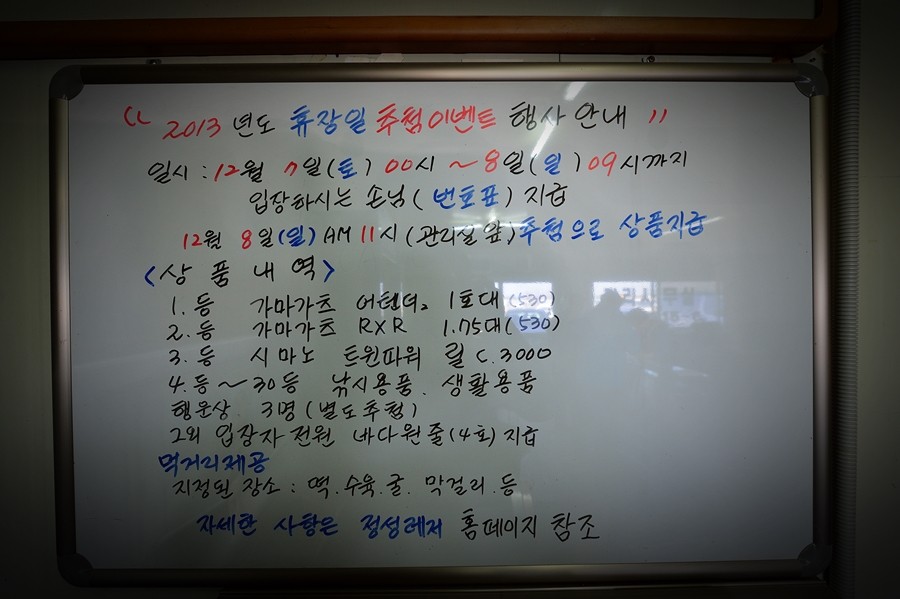 “ 2013 년도 휴장일 추첨이벤트 행사 안내 ”
일시 : 12월 7일(토) 00시 ~ 8일(일) 09시까지
입장하시는 손님(번호표) 지급
12월 8일(일) AM 11시 (관리실 앞) 추첨으로 상품지급
<상 품 내 역>
1. 등 가마가츠 어텐더2 1호대 (530)
2. 등 가마가츠 RXR 1.75대 (530)
3. 등 시마노 트윈파워 릴 C.3000
4. 등 ~ 30등 낚시용품. 생활용품
행운상. 3명 (별도추첨)
그외 입장자 전원 바다원줄(4호) 지급
먹거리제공
지정된 장소 : 떡.수육.굴. 막걸리.등
자세한 사항은 정성레저 홈페이지 참조